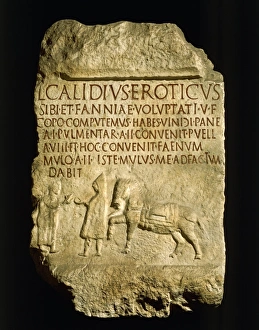 L·CALIDIVS·EROTICVS
SIBI·ET·FANNIAE·VOLVPTATI·V·F
COPO·COMPVTEMVS·HABES·VINI·Ɔ·I·PANE
A·I·PVLMENTAR·A·II·CONVENIT·PVELL
A·VIII·ET·HOC·CONVENIT·FAENVM
MVLO·A·II·ISTE·MVLVS·ME·AD·FACTVM
DABIT